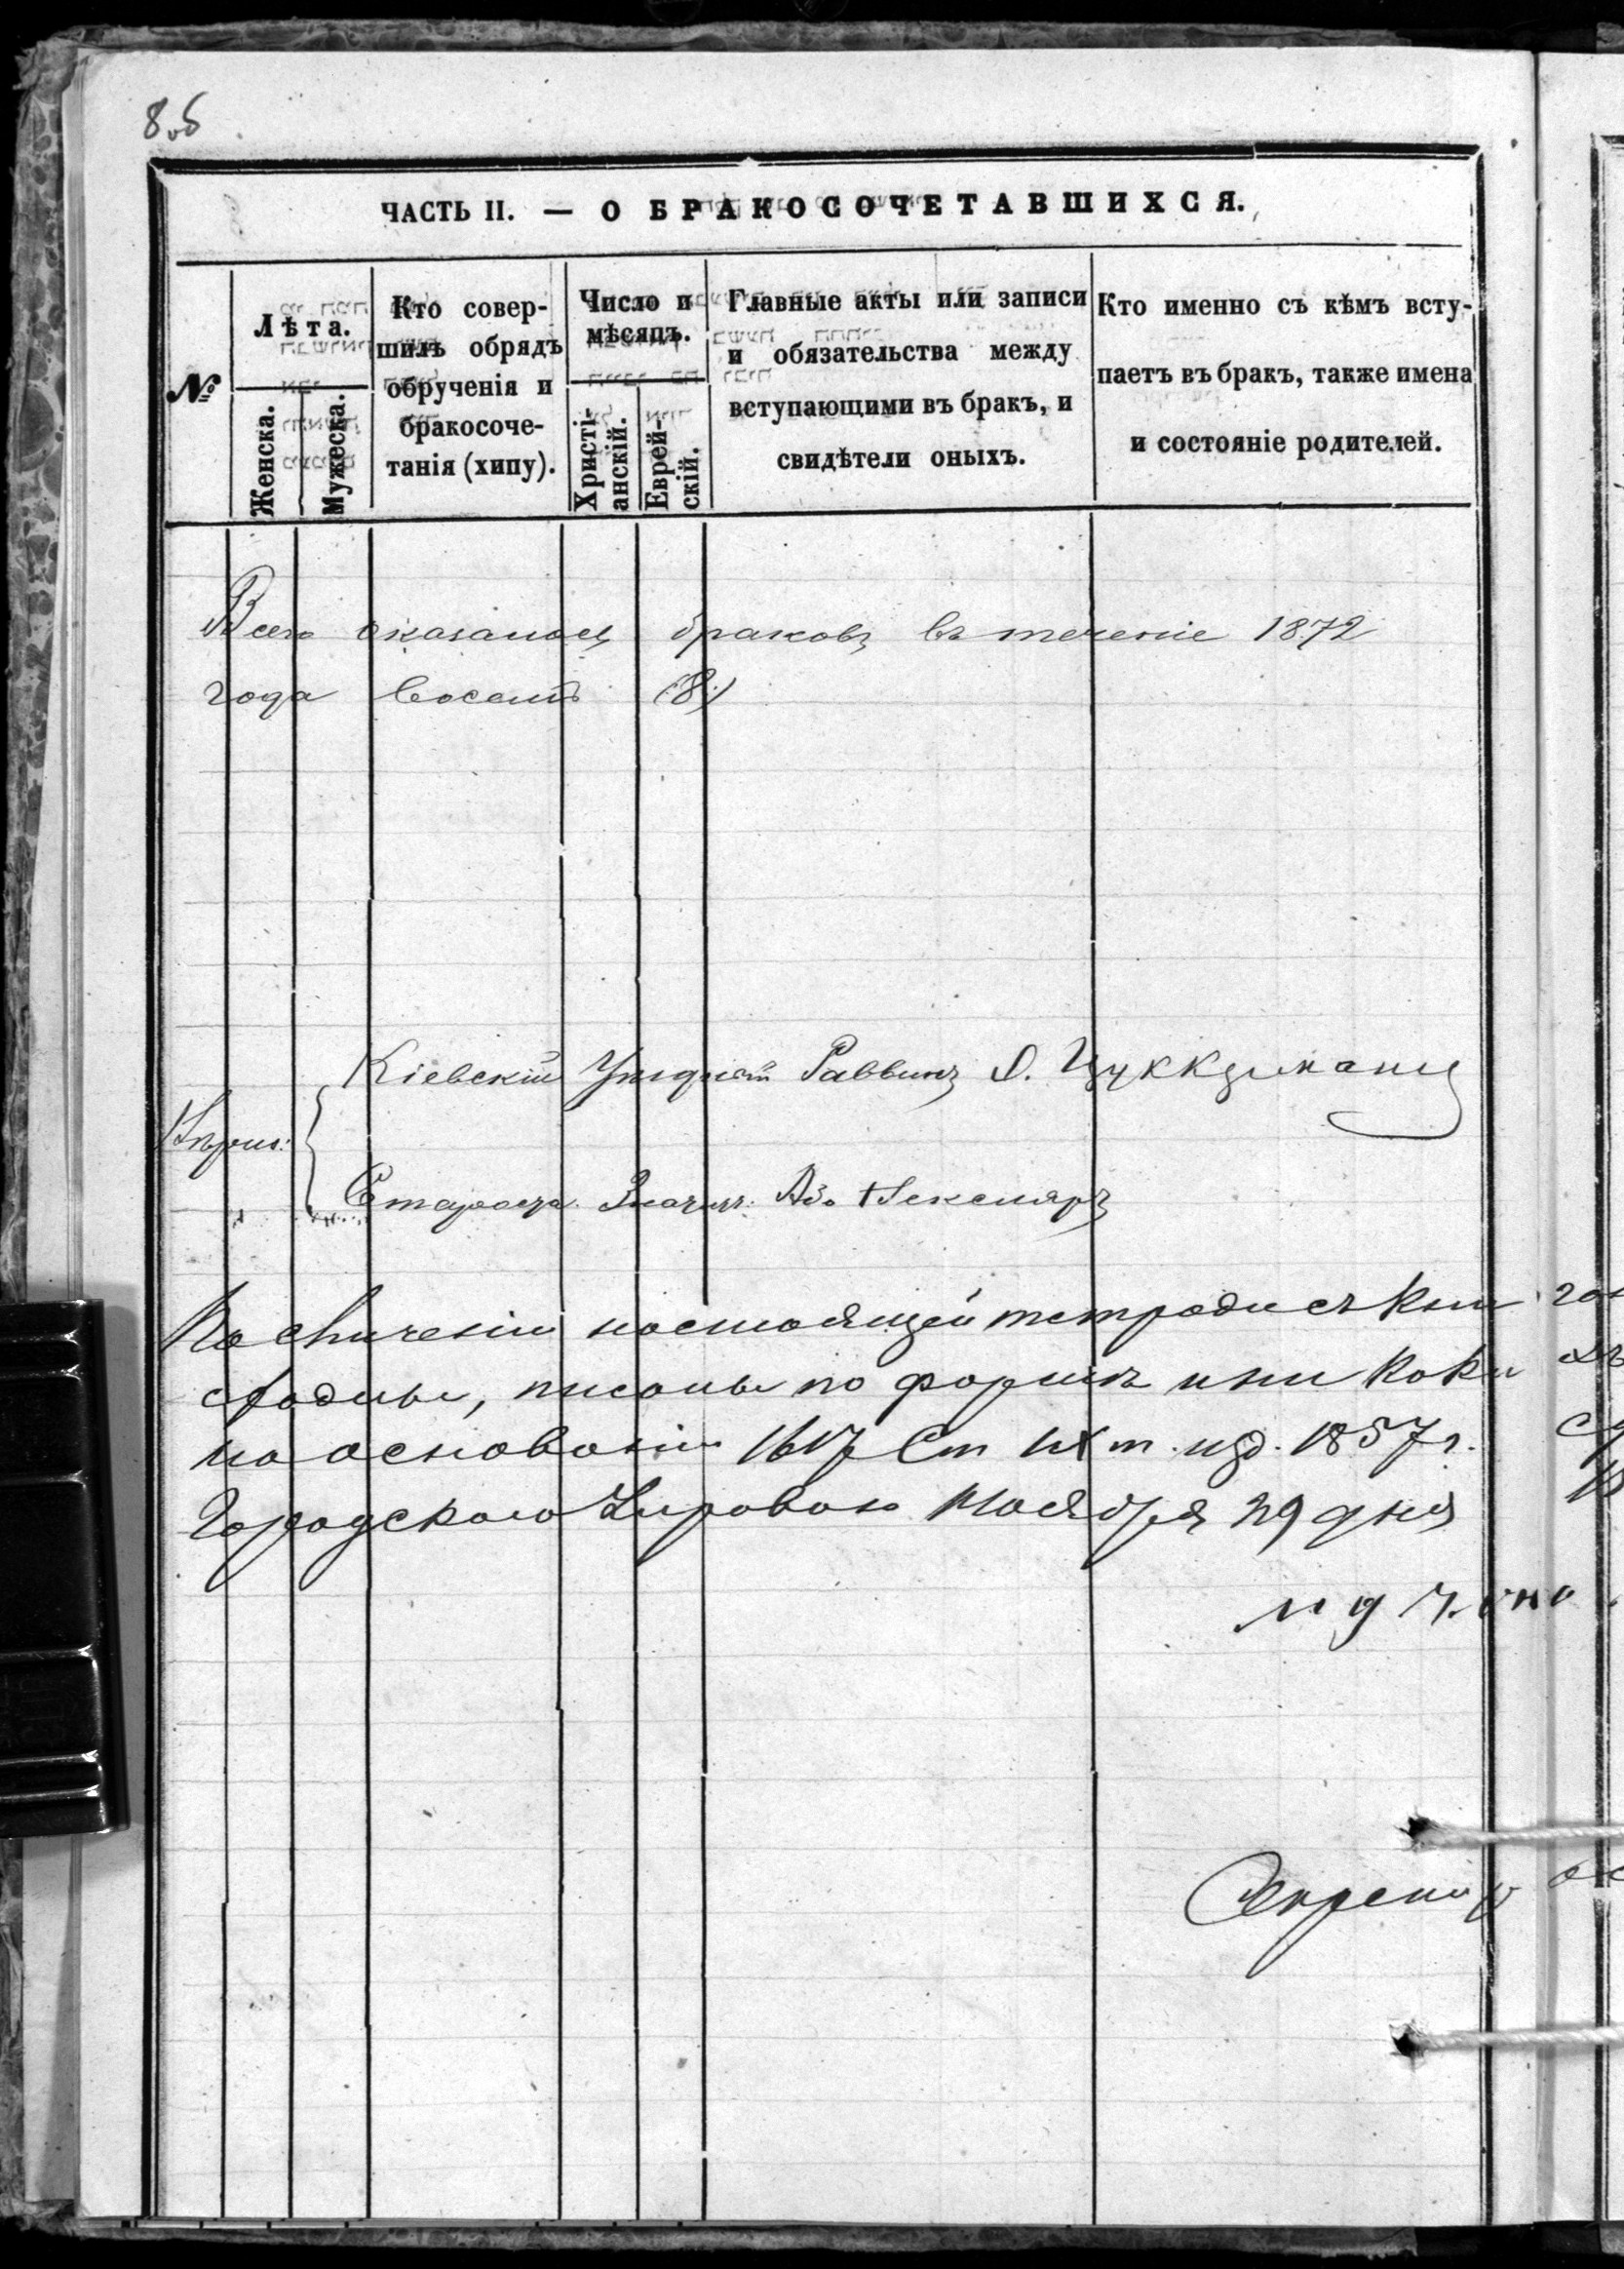 8об
ЧАСТЬ II. — О БРАКОСОЧЕТАВШИХСЯ.
№
Лѣта.
Женска.
Мужеска.
Кто совер-
шилъ обрядъ
обрученія и
бракосоче-
танія (хипу).
Число и
мѣсяцъ.
Христі-
анскій.
Еврей-
скій.
Главные акты или записи
и обязательства между
вступающими въ бракъ, и
свидѣтели оныхъ.
Кто именно съ кѣмъ всту-
паетъ въ бракъ, также имена
и состояніе родителей.
Всего оказалось браковъ въ теченіе 1872
года восемь (8)
Кіевскій Уѣздный Раввинъ Цуккерманъ
Староста
По сличеніи настоящей тетради съ кни
сходны, писаны по формѣ
на основаніи 1617 Ст IX т. изд. 1857 г.
Городскою Управою Ноября 29 дня
Секретар